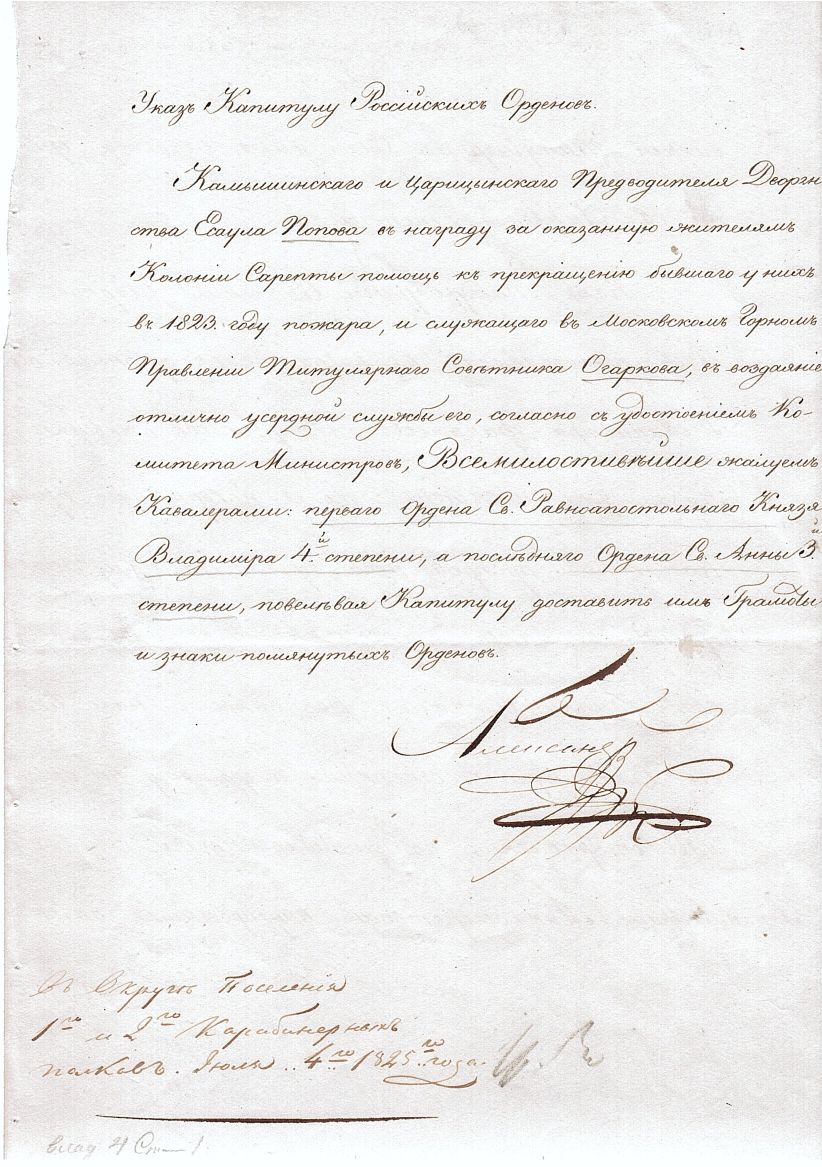 Указъ Капитулу Россійскихъ Орденовъ.
Камышинскаго и Царицынскаго Предводителя Дворян
ства Есаула Попова въ награду за оказанную жителямъ
Колоніи Сарепты помощь къ прекращенію бывшаго у нихъ
въ 1823. году пожара, и служащаго въ Московскомъ Горномъ
Правленіи Титулярнаго Совѣтника Огаркова, въ воздаяніе
отлично усердной службы его, согласно съ удостоеніемъ Ко-
митета Министровъ, Всемилостивѣйше жалуемъ
Кавалерами: перваго Ордена Св. Равноапостольнаго Князя
Владиміра 4й степени, а послѣдняго Ордена Св. Анны 3й
степени, повелѣвая Капитулу доставить имъ Грамоты
и знаки помянутыхъ Орденовъ.
Александръ
Въ Округѣ Поселенія
1го и 2го Карабинерныхъ
полковъ. Іюля .. 4го 1825го года.
Влад 4 Ст 1